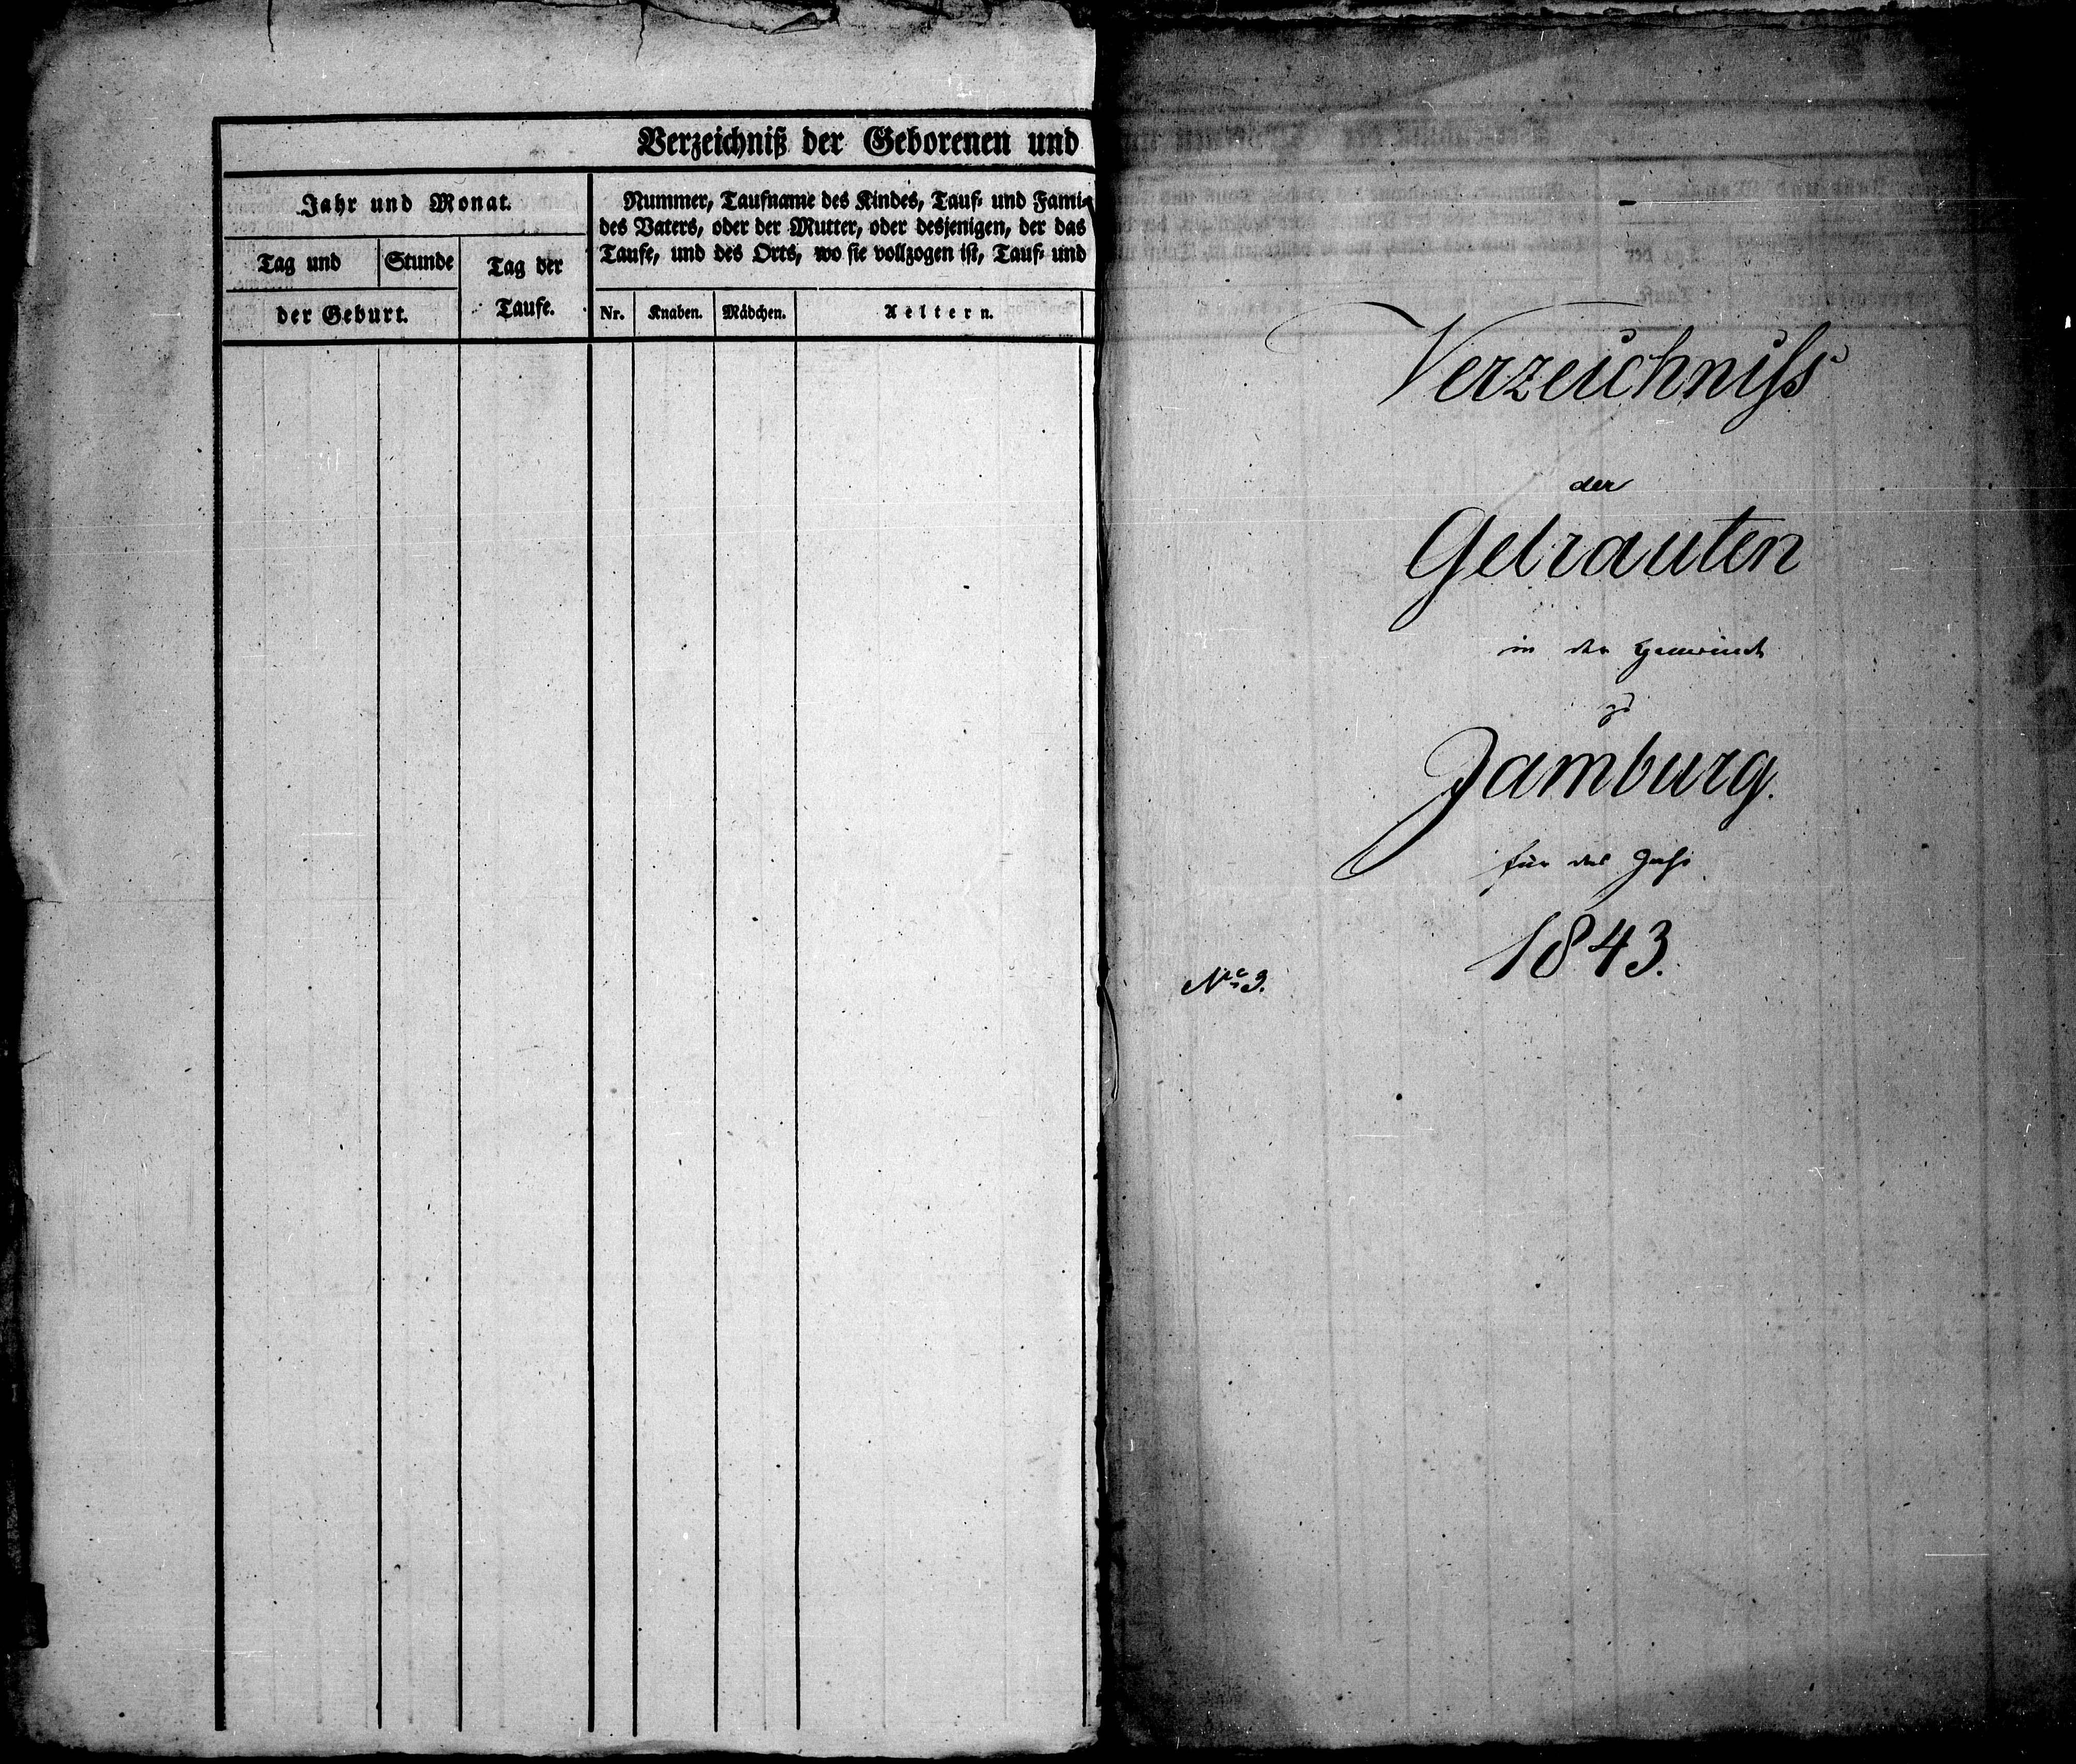 Verzeichniß der Geborenen und
Jahr und Monat.
Tag und
Stunde
der Geburt.
Tag der
Taufe.
Nummer, Taufname des Kindes, Tauf- und Fami-
des Vaters, oder der Mutter, oder desjenigen, der das
Taufe, und des Orts, wo sie vollzogen ist, Tauf- und
Nr.
Knaben.
Mädchen.
Aeltern.
Verzeichniss
der
Getrauten
in der Gemeinde
zu
Jamburg.
für das Jahr
1843.
No 3.